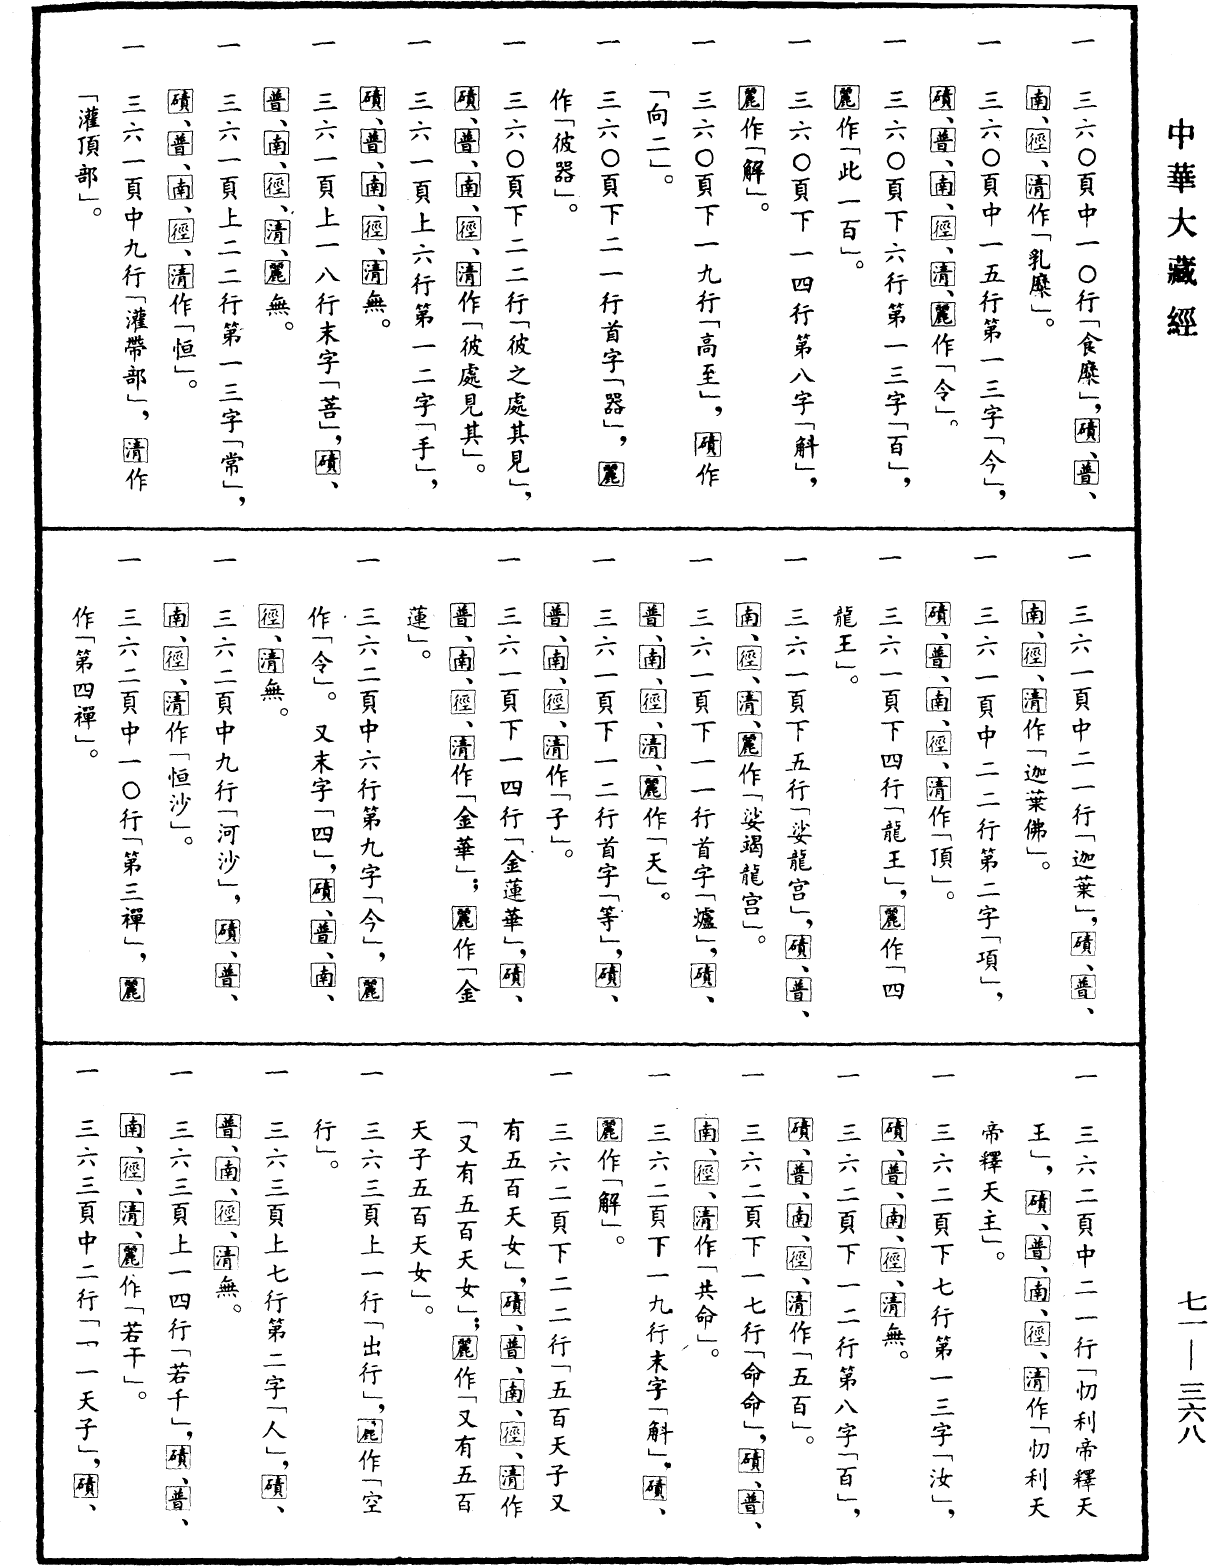 中華大藏經
一　三六〇頁中一〇行「食糜」，磧、普、
南、徑、清作「乳糜」。
一　三六〇頁中一五行第一三字「今」，
磧、普、南、徑、清、麗作「令」。
一　三六〇頁下六行第一三字「百」，
麗作「此一百」。
一　三六〇頁下一四行第八字「斛」，
麗作「解」。
一　三六〇頁下一九行「高至」，磧作
「向二」。
一　三六〇頁下二一行首字「器」，麗
作「彼器」。
一　三六〇頁下二二行「彼之處其見」，
磧、普、南、徑、清作「彼處見其」。
一　三六一頁上六行第一二字「手」，
磧、普、南、徑、清無。
一　三六一頁上一八行末字「菩」，磧、
普、南、徑、清、麗無。
一　三六一頁上二二行第一三字「常」，
磧、普、南、徑、清作「恒」。
一　三六一頁中九行「灌帶部」，清作
「灌頂部」。
一　三六一頁中二一行「迦葉」，磧、普、
南、徑、清作「迦葉佛」。
一　三六一頁中二二行第二字「項」，
磧、普、南、徑、清作「頂」。
一　三六一頁下四行「龍王」，麗作「四
龍王」。
一　三六一頁下五行「娑龍宮」，磧、普、
南、徑、清、麗作「娑竭龍宮」。
一　三六一頁下一一行首字「爐」，磧、
普、南、徑、清、麗作「天」。
一　三六一頁下一二行首字「等」，磧、
普、南、徑、清作「子」。
一　三六一頁下一四行「金蓮華」，磧、
普、南、徑、清作「金華」；麗作「金
蓮」。
一　三六二頁中六行第九字「今」，麗
作「令」。又末字「四」，磧、普、南、
徑、清無。
一　三六二頁中九行「河沙」，磧、普、
南、徑、清作「恒沙」。
一　三六二頁中一〇行「第三禪」，麗
作「第四禪」。
一　三六二頁中二一行「忉利帝釋天
王」，磧、普、南、徑、清作「忉利天
帝釋天主」。
一　三六二頁下七行第一三字「汝」，
磧、普、南、徑、清無。
一　三六二頁下一二行第八字「百」，
磧、普、南、徑、清作「五百」。
一　三六二頁下一七行「命命」，磧、普、
南、徑、清作「共命」。
一　三六二頁下一九行末字「斛」，磧、
麗作「解」。
一　三六二頁下二二行「五百天子又
有五百天女」，磧、普、南、徑、清作
「又有五百天女」；麗作「又有五百
天子五百天女」。
一　三六三頁上一行「出行」，麗作「空
行」。
一　三六三頁上七行第二字「人」，磧、
普、南、徑、清無。
一　三六三頁上一四行「若千」，磧、普、
南、徑、清、麗作「若干」。
一　三六三頁中二行「一一天子」，磧、
七一—三六八